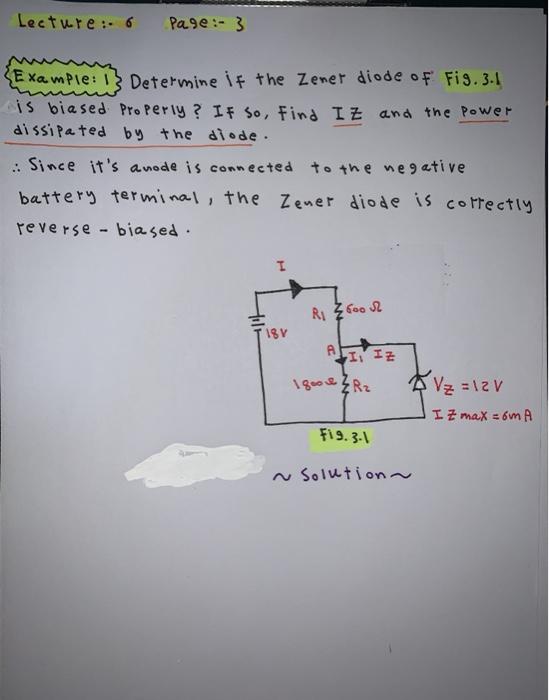 Lecture:- 6 Page:- 3
Example: 1 Determine if the Zener diode of Fig. 3.1
is biased Properly? If So, Find IZ and the Power
dissipated by the diode.
∴ Since it's anode is connected to the negative
battery terminal, the Zener diode is correctly
reverse - biased.
I
R1 600 Ω
18V
A I1 IZ
1800Ω R2
VZ = 12V
IZ max = 6mA
Fig. 3.1
~ Solution ~